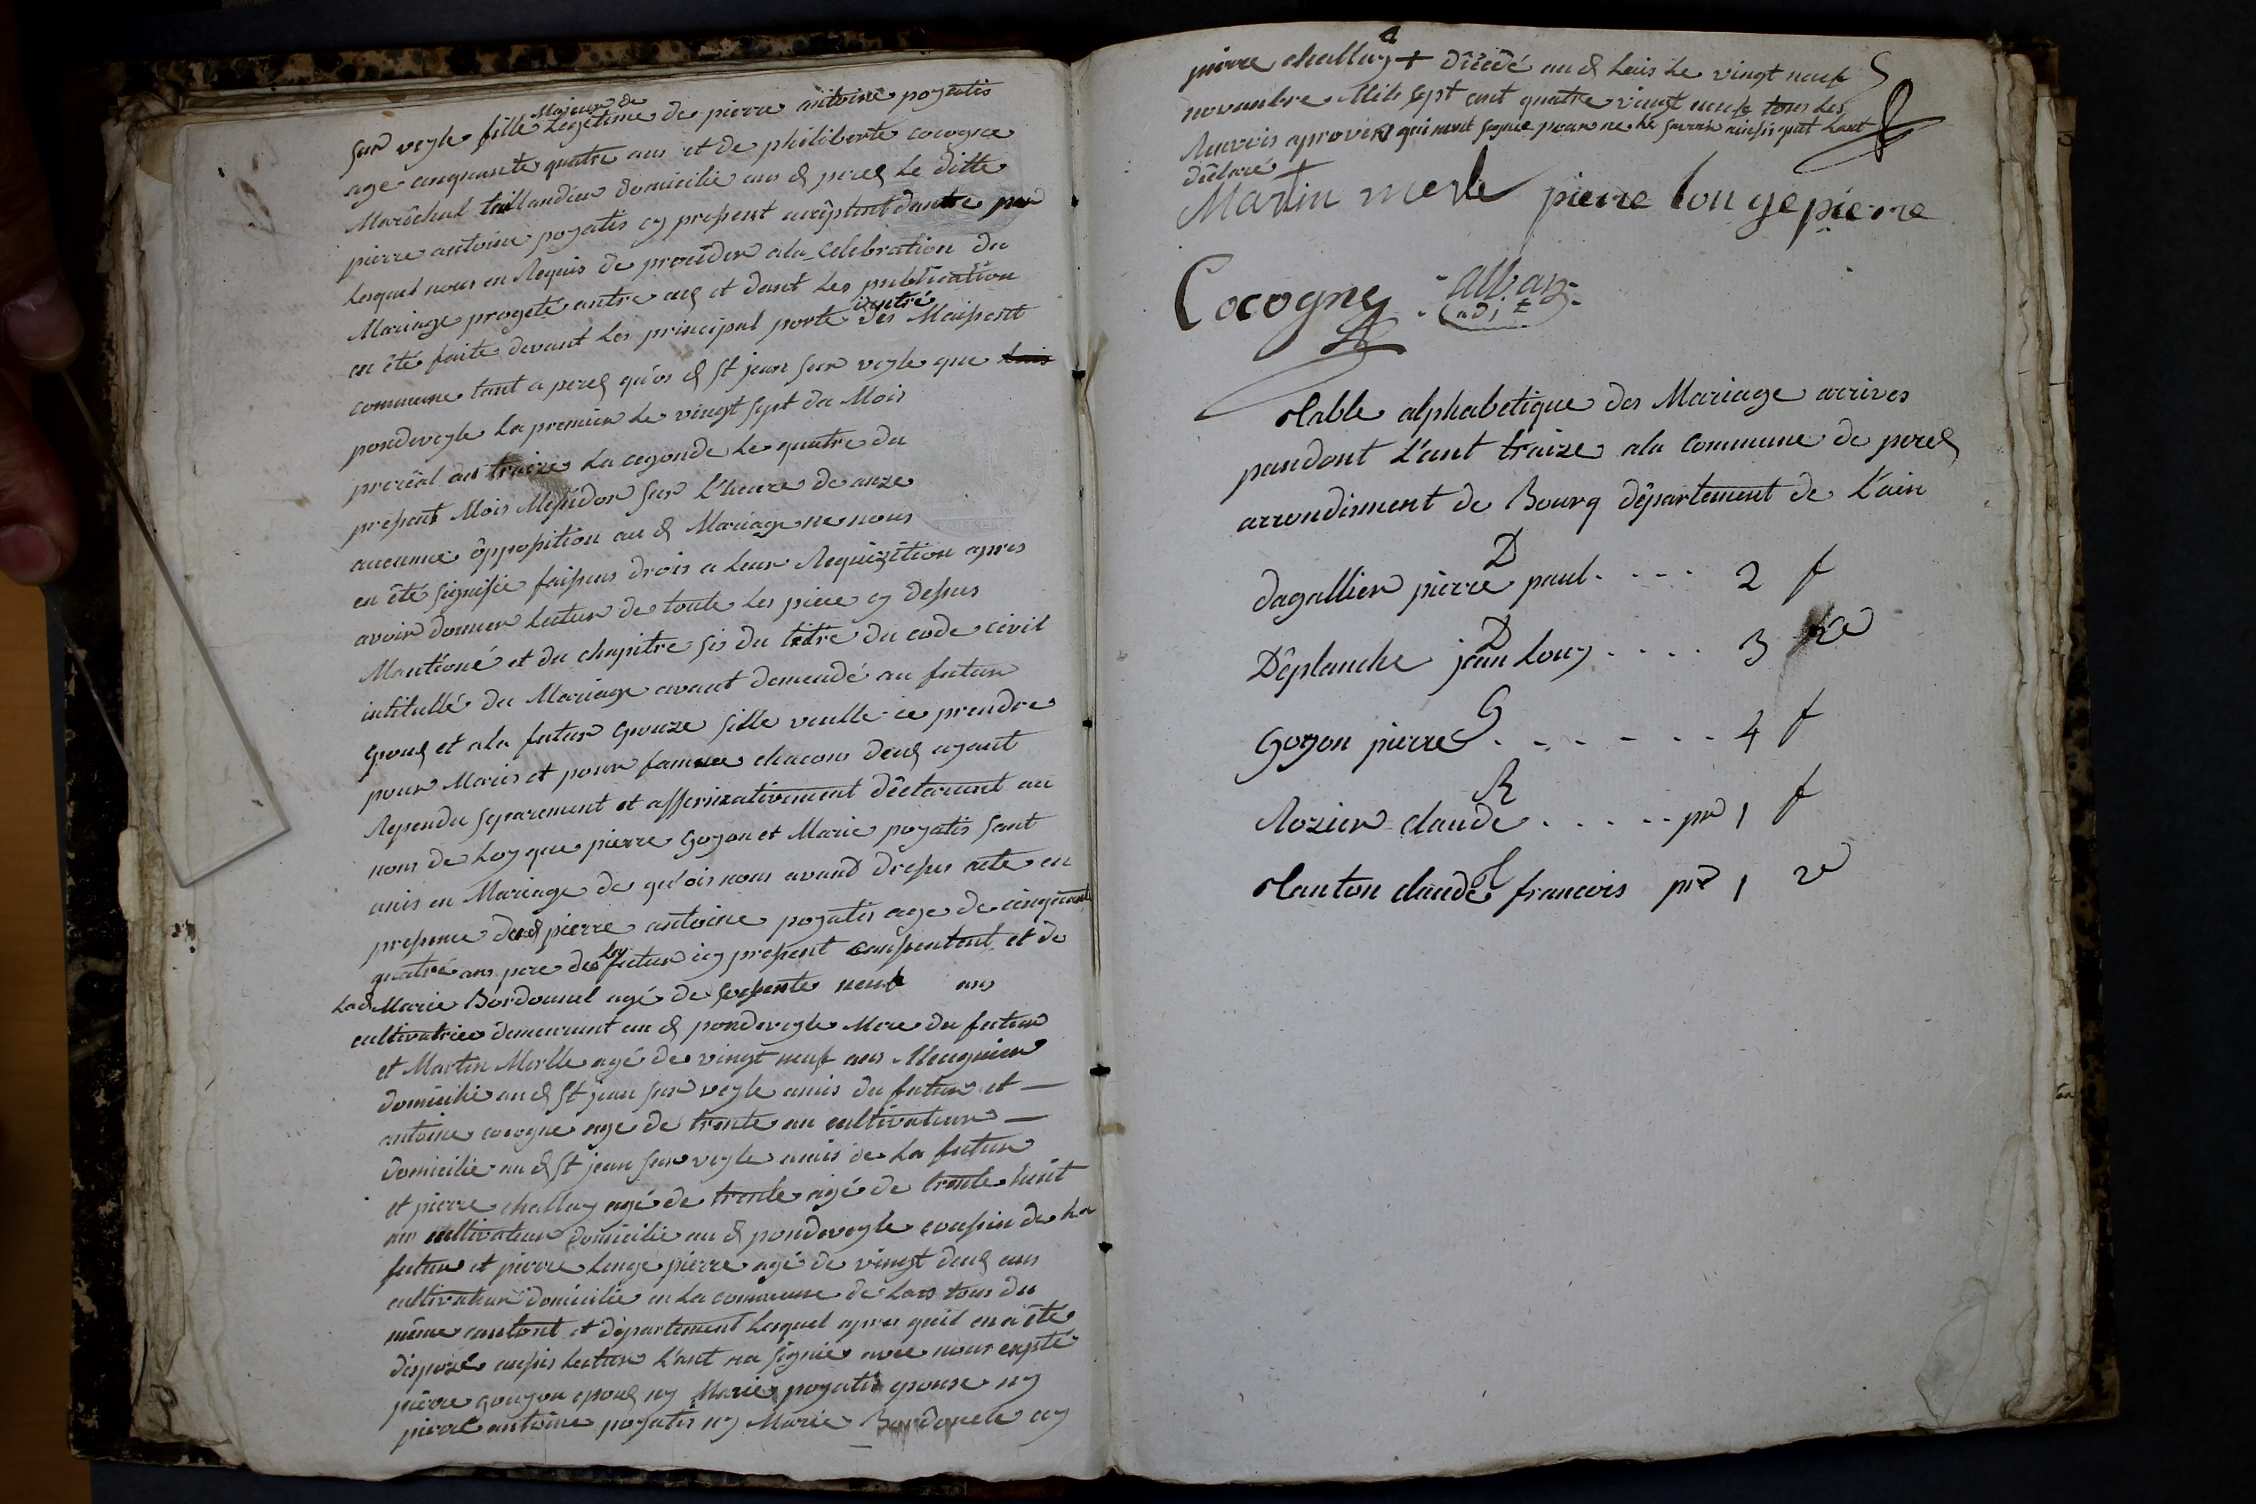 sur veyle fille Majeur de Legetime de pierre antoine poyatis
age cinquante quatre ans et de philiberte cocogne
Marêchal taillandier domicilie au d perex Le ditte
pierre antoine poyatis cy present
Lesquel nous en Requis de proceder a la Celebration du
Mariage progeté entre eux et dont Les publication
on été faite devant Les principal porte d'entré des Maisont
commune tant a perex qu'os d St jean sur veyle que
pondeveyle La premier Le vingt sept du Mois
prerial an traize La cegonde Le quatre du
present Mois Messidor sur L'heure de onze
aucunne ôpposition au d Mariage ne nous
en été signifie faisans drois a Leur Requizition apres
avoir donner Lectur de toute Les piece cy dessus
Mantioné et du chapitre sis du titre du code civil
intitullé du Mariage avant demendé au futur
epoux et a la futur epouze sille veulle ce prendre
pour Maris et pour famme chacons deux ayant
Rependu separement et affermativement dêclarunt au
nom de Loy que pierre Goyon et Marie poyatis sont
unis en Mariage de qu'ois nous avond dresser acte en
presence dud pierre antoine poyatis age de cinquante
quatre ans pere de La futur icy present consentent et de
Lad Marie Bordonnel agé de soesente neuf ans
cultivatrice demeurant au d pondeveyle Mere du futur
et Martin Merlle agé de vingt neuf ans Meugnier
domicilie au d St jean sur veyle amis du futur et —
antoine cocogne age de trente an cultivateur —
Domicilie au d St jean sur veyle amis de La futur
et pierre challuy agé de trente agé de trente huit
ans cultivateur domicilie au d pondeveyle coussin de La
futur et pierre Longe pierre agé de vingt deux ans
cultivateur domicilie en La commune de Lais tous du
même cantont et département Lesquel apres quil en a été
disposé aussis Lectur L'ont na signie avec nous exsepté
pierre gouyon epoux ny Marie poyatis epouse ny
pierre antoine poyatis ny Marie Bordonele ny
pierre challuy + décedé au d Lais Le vingt neuf
novambre Mile sept cent quatre vingt neufe tous Les
Renvois aprovéz qui nont signie pour ne Le savoir ainsis quil Lont
dêclaré
Martin merle pierre longepierre
Cocogne alban
adjt
table alphabetique des Mariage arrives
pandant L'ant traize a la Commune de perex
arrondisment de Bourg département de L'ain
D
dagallier pierre paul . . . . 2 f
D
Dêplanche jean Louy . . . . 3
G
Goyon pierre . . . . . . . 4 f
R
Rozier claude . . . . . pr 1 f
T
tanton claude francois pr 1 v